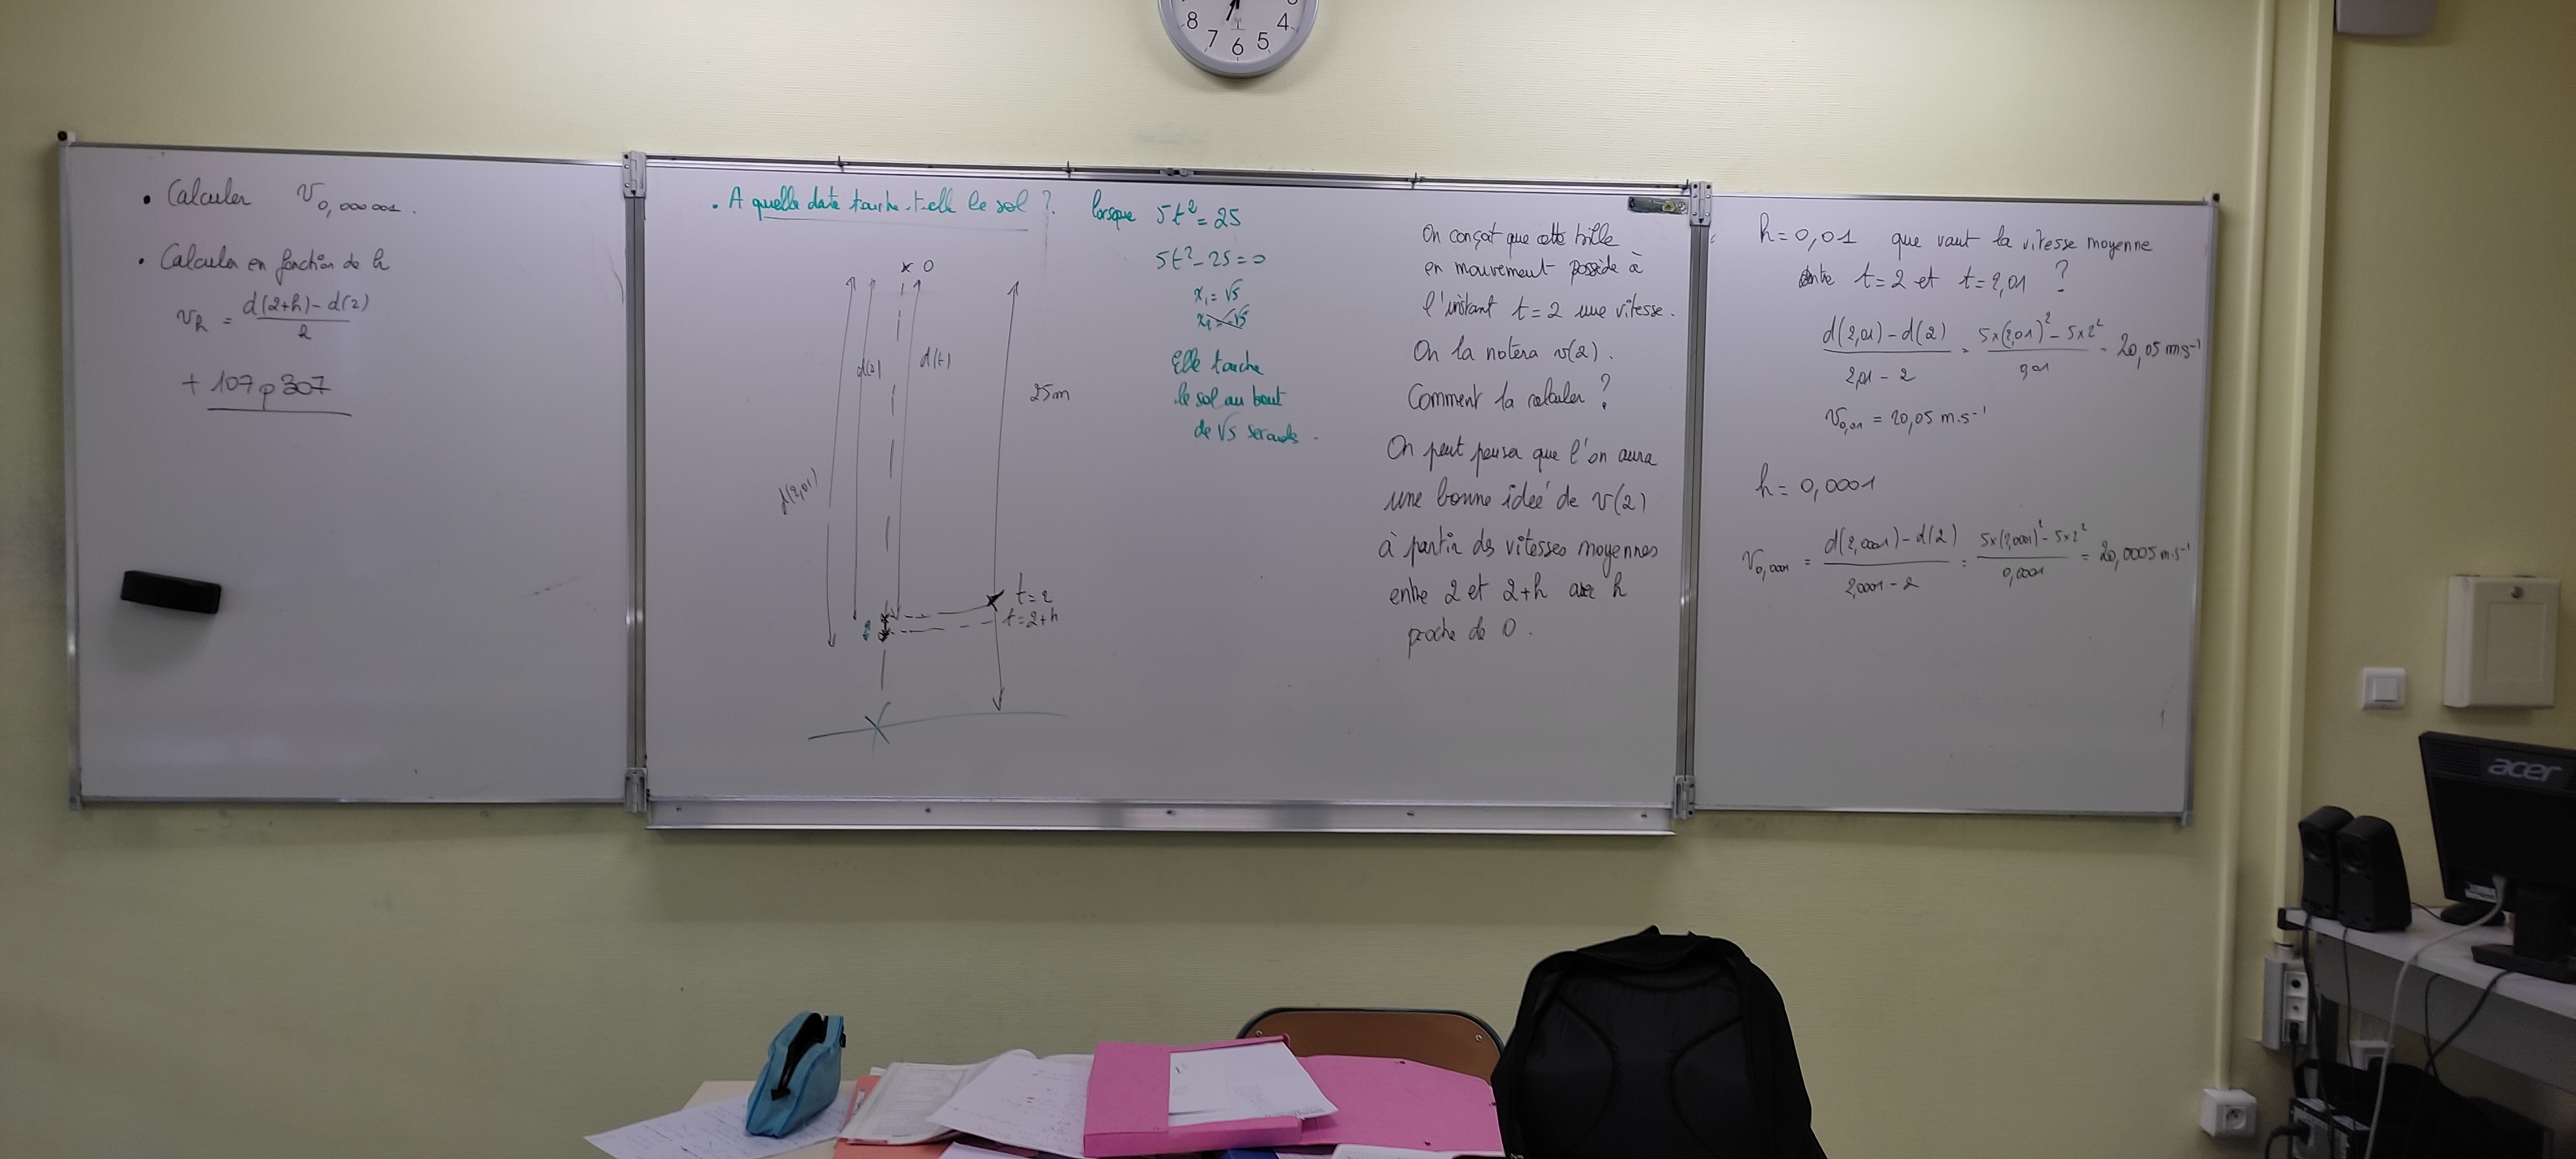 8
7
6
5
4
• Calculer V0,000001.
• Calculer en fonction de h
vh = d(2+h) - d(2) / h
+ 107 p 307
• A quelle date touche-t-elle le sol ?
lorsque 5t² = 25
5t² - 25 = 0
x₁ = √5
x₂ = -√5
Elle touche
le sol au bout
de √5 secondes.
x O
d(2,01)
d(2)
d(t)
25m
t = 2
t = 2+h
On conçoit que cette bille
en mouvement possède à
l'instant t = 2 une vitesse.
On la notera v(2).
Comment la calculer ?
On peut penser que l'on aura
une bonne idée de v(2)
à partir des vitesses moyennes
entre 2 et 2+h avec h
proche de 0.
h = 0,01 que vaut la vitesse moyenne
entre t = 2 et t = 2,01 ?
d(2,01) - d(2) / 2,01 - 2 = 5×(2,01)² - 5×2² / 0,01 = 20,05 m.s⁻¹
V0,01 = 20,05 m.s⁻¹
h = 0,0001
V0,0001 = d(2,0001) - d(2) / 2,0001 - 2 = 5×(2,0001)² - 5×2² / 0,0001 = 20,0005 m.s⁻¹
acer